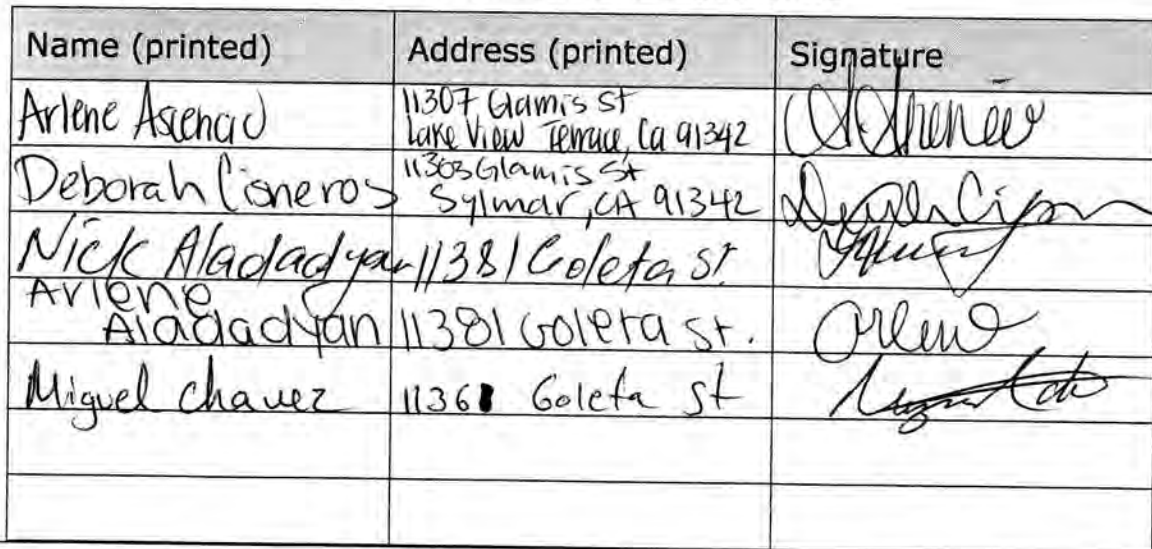 Name (printed) Address (printed) Signature
Arlene Ascencio 11307 Glamis St
Lake View Terrace, Ca 91342
Deborah Cisneros 11303 Glamis St
Sylmar, CA 91342
Nick Aladadyan 11381 Goleta St.
Arlene
Aladadyan 11381 Goleta St. Arlene
Miguel chavez 11361 Goleta St